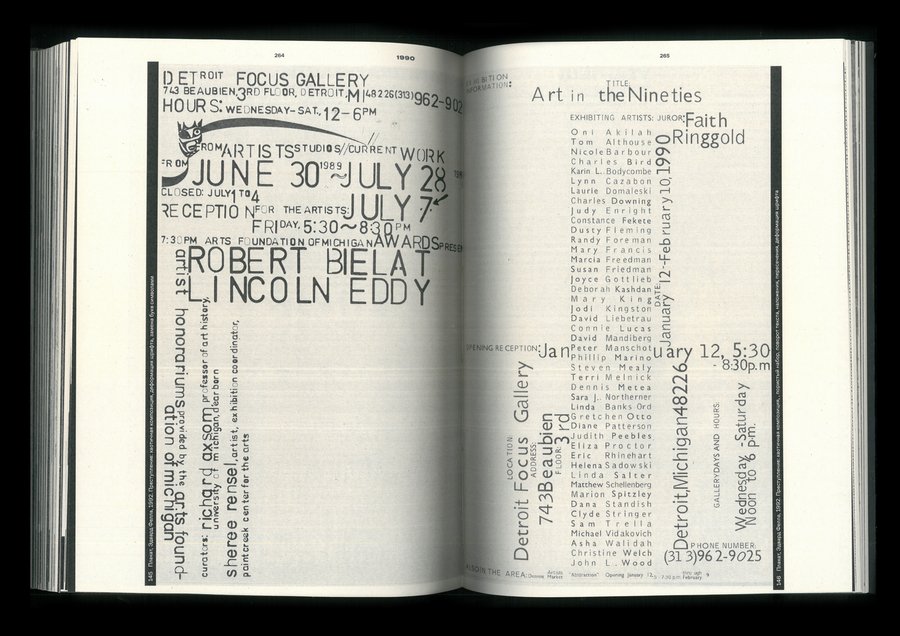 264
1990
DETROIT FOCUS GALLERY
743 BEAUBIEN, 3RD FLOOR, DETROIT, MI 48226(313)962-902
HOURS: WEDNESDAY–SAT., 12–6PM
FROM ARTISTS STUDIOS//CURRENT WORK
FROM
JUNE 30 1989 ~JULY 28
CLOSED: JULY 1 TO 4
RECEPTION FOR THE ARTISTS: JULY 7
FRIDAY, 5:30~8:30PM
7:30PM ARTS FOUNDATION OF MICHIGAN AWARDS PRESEN
ROBERT BIELAT
LINCOLN EDDY
artist honorariums provided by the arts found-
ation of michigan
curators: richard axsom professor of art history,
university of michigan, dearborn
sheree rensel, artist, exhibition coordinator,
paint creek center for the arts
145
Плакат, Эдвард Фелла, 1992. Преступление: хаотичная композиция, деформация шрифта, замена букв символами
265
EXHIBITION
INFORMATION:
TITLE
Art in the Nineties
EXHIBITING ARTISTS:
JUROR: Faith
Ringgold
Oni Akilah
Tom Althouse
Nicole Barbour
Charles Bird
Karin L. Bodycombe
Lynn Cazabon
Laurie Domaleski
Charles Downing
Judy Enright
Constance Fekete
Dusty Fleming
Randy Foreman
Mary Francis
Marcia Freedman
Susan Friedman
Joyce Gottlieb
Deborah Kashdan
Mary King
Jodi Kingston
David Liebetrau
Connie Lucas
David Mandiberg
Peter Manschot
Phillip Marino
Steven Mealy
Terri Melnick
Dennis Metea
Sara J. Northerner
Linda Banks Ord
Gretchen Otto
Diane Patterson
Judith Peebles
Eliza Proctor
Eric Rhinehart
Helena Sadowski
Linda Salter
Matthew Schellenberg
Marion Spitzley
Dana Standish
Clyde Stringer
Sam Trella
Michael Vidakovich
Asha Walidah
Christine Welch
John L. Wood
DATE:
January 12-February 10, 1990
OPENING RECEPTION: January 12, 5:30
- 8:30p.m
LOCATION:
Detroit Focus Gallery
ADDRESS:
743 Beaubien
FLOOR: 3rd
Detroit, Michigan 48226
GALLERY DAYS AND HOURS:
Wednesday -Saturday
Noon to 6 p.m.
PHONE NUMBER:
(313)962-9025
ALSO IN THE AREA: Artists Market "Abstraction" Opening January 12, 7:30 p.m. through February 9
146
Плакат, Эдвард Фелла, 1992. Преступление: хаотичная композиция, пористый набор, поворот текста, наложения, пересечения, деформация шрифта